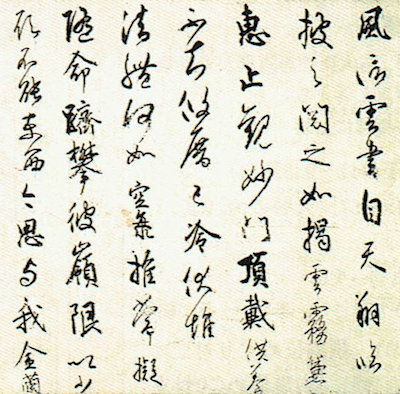 風信雲書自天翔臨
披之閲之如掲雲霧兼
恵止観妙門頂戴供養
不知攸厝已冷伏惟
法體何如空海推常擬
随命躋攀彼嶺限以少
願不能東西今思与我金蘭